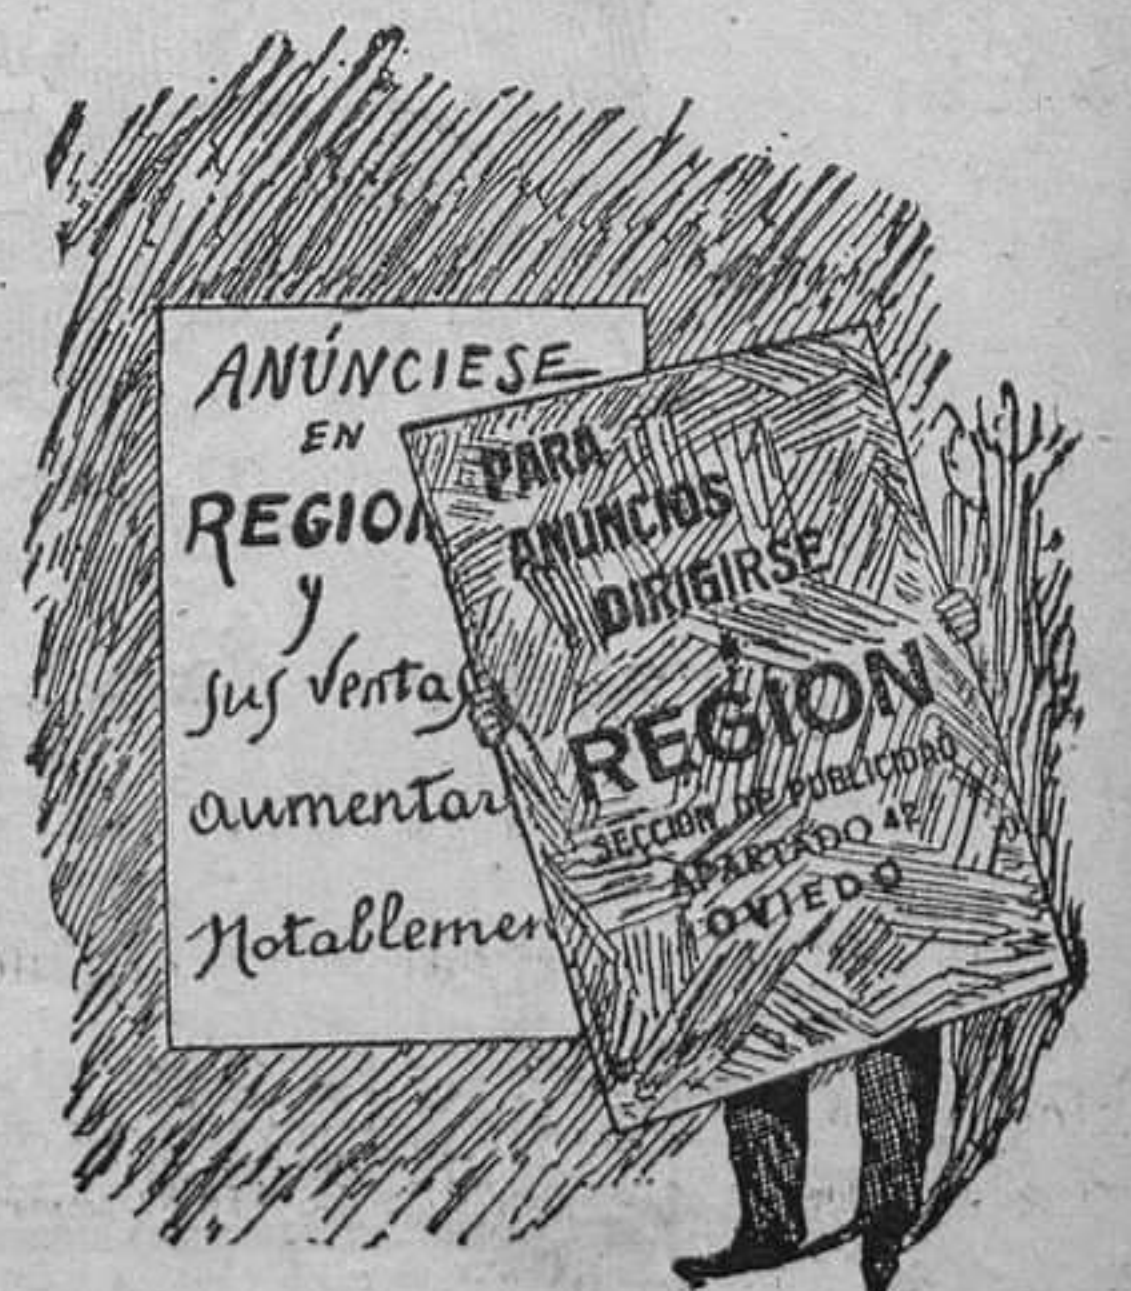 ANÚNCIESE
EN
REGION
y
sus ventas
aumentar
Notablemen
PARA
ANUNCIOS
DIRIGIRSE
A
REGION
SECCION DE PUBLICIDAD
APARTADO 42
OVIEDO